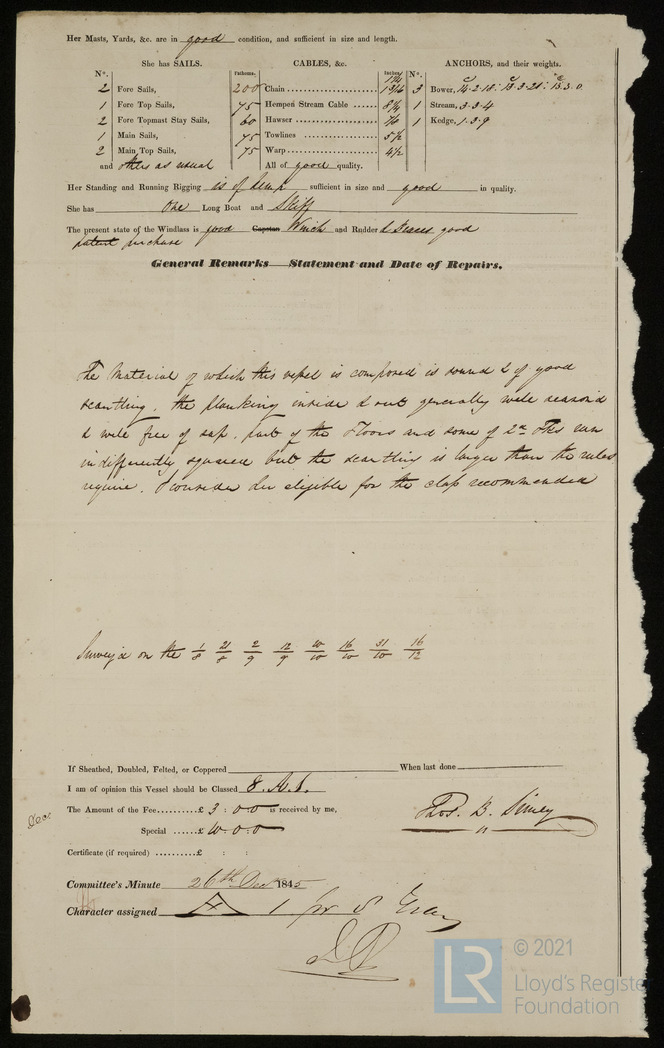 Her Masts, Yards, &c. are in good condition, and sufficient in size and length.
She has SAILS.
CABLES, &c.
ANCHORS, and their weights.
N°.
Fathoms.
Inches
N°.
2 Fore Sails,
200 Chain
3 Bower,
1 Fore Top Sails,
75 Hempen Stream Cable 8¼
1 Stream, 3.3.4
2 Fore Topmast Stay Sails,
60 Hawser
1 Kedge, 1.3.9
1 Main Sails,
75 Towlines 5½
2 Main Top Sails,
75 Warp 4½
and others as usual
All of good quality.
Her Standing and Running Rigging is of hemp sufficient in size and good in quality.
She has one Long Boat and Skiff
The present state of the Windlass is good Capstan Winch and Rudder & Braces good
patent purchase
General Remarks Statement and Date of Repairs.
The Material of which this vessel is composed is sound & of good
scantling. the planking inside & out generally well season'd
& well free of sap. part of the Floors and some of 2nd
indifferently squared but the scantling is larger than the rules
require. I consider her eligible for the class recommended
Survey'd on the 1/8 21/8 2/9 12/9 10/10 16/10 31/10 16/12
If Sheathed, Doubled, Felted, or Coppered
When last done
I am of opinion this Vessel should be Classed 8. A.1.
The Amount of the Fee..........£ 3 : 0 : 0 is received by me,
Special ......£ 10 : 0 : 0
Thos. B. Simey
Certificate (if required) ..........£ : :
Committee's Minute 26th Dec 1845
Character assigned A 1 for 8 Years
© 2021
LR
Lloyd's Register
Foundation